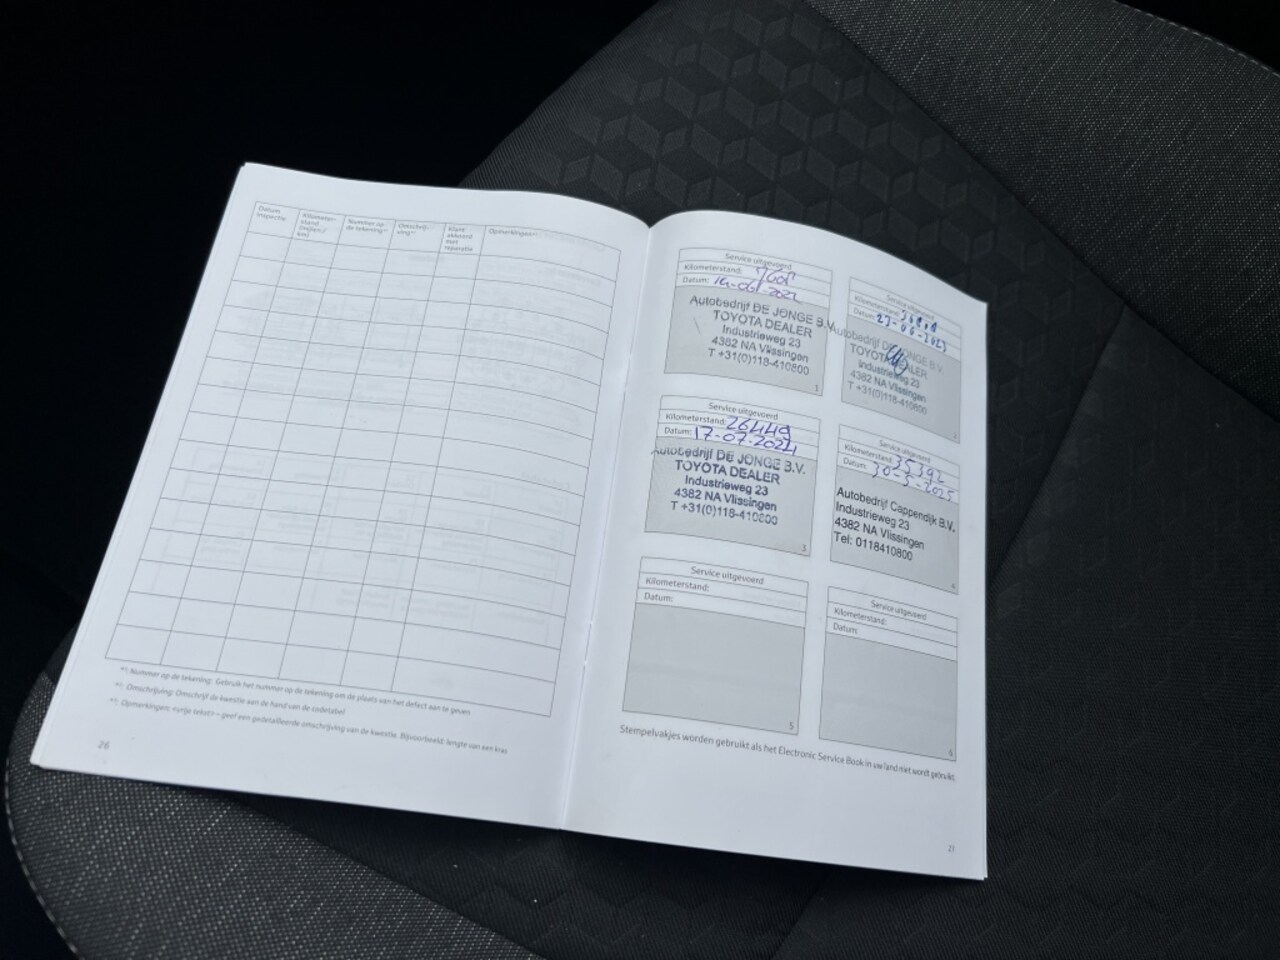 Datum inspectie
Kilometer-stand (mijlen / km)
Nummer op de tekening*¹
Omschrij-ving*²
Klant akkoord met reparatie
Opmerkingen*³
*¹: Nummer op de tekening: Gebruik het nummer op de tekening om de plaats van het defect aan te geven
*²: Omschrijving: Omschrijf de kwestie aan de hand van de codetabel
*³: Opmerkingen: <vrije tekst> – geef een gedetailleerde omschrijving van de kwestie. Bijvoorbeeld: lengte van een kras
26
Service uitgevoerd
Kilometerstand:
Datum:
Autobedrijf DE JONGE B.V.
TOYOTA DEALER
Industrieweg 23
4382 NA Vlissingen
T +31(0)118-410800
1
Service uitgevoerd
Kilometerstand:
Datum: 27-06-2023
Autobedrijf DE JONGE B.V.
TOYOTA DEALER
Industrieweg 23
4382 NA Vlissingen
T +31(0)118-410800
2
Service uitgevoerd
Kilometerstand: 26449
Datum: 17-07-2024
Autobedrijf DE JONGE B.V.
TOYOTA DEALER
Industrieweg 23
4382 NA Vlissingen
T +31(0)118-410800
3
Service uitgevoerd
Kilometerstand: 35392
Datum: 30-5-2025
Autobedrijf Cappendijk B.V.
Industrieweg 23
4382 NA Vlissingen
Tel: 0118410800
4
Service uitgevoerd
Kilometerstand:
Datum:
5
Service uitgevoerd
Kilometerstand:
Datum:
6
Stempelvakjes worden gebruikt als het Electronic Service Book in uw land niet wordt gebruikt.
27